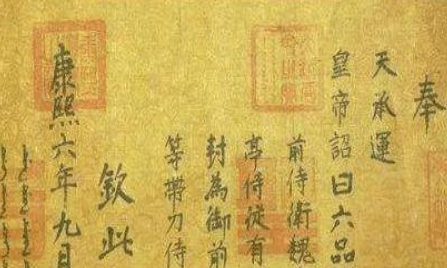 奉
天承運
皇帝詔曰六品
前侍衛魏
亭侍從有
封為御前
等帶刀侍
欽此
康熙六年九月